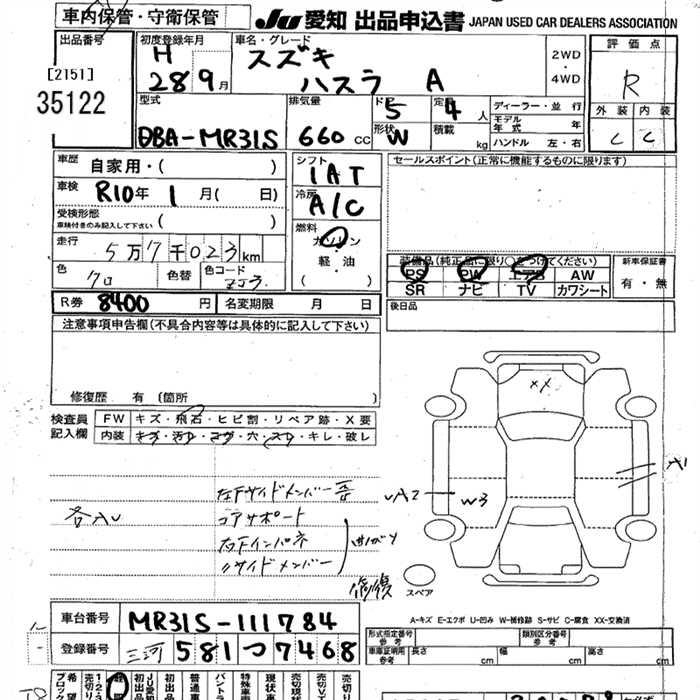 車内保管・守衛保管
JU 愛知 出品申込書 JAPAN USED CAR DEALERS ASSOCIATION
出品番号
[2151]
35122
初度登録年月
H
28 9月
車名・グレード
スズキ
ハスラ A
2WD
・
4WD
評価点
R
外装 内装
C C
型式
DBA-MR31S
排気量
660 cc
ド 5
形状 W
定 4 人
積載 kg
ディーラー・並行
モデル年式 年
ハンドル 左・右
車歴 自家用・( )
車検 R10年 1月( 日)
受検形態
車検付きのみ記入して下さい ( )
走行 5万7千023km
色 クロ 色替 色コード ZJ3
シフト
1AT
冷房
A/C
燃料
ガソリン
・
軽・油
( )
セールスポイント(正常に機能するものに限ります)
装備品(純正品に限り○をつけてください)
PS PW エアB AW
SR ナビ TV カワシート
新車保証書
有・無
後日品
R券 8400 円 名変期限 月 日
注意事項申告欄(不具合内容等は具体的に記入して下さい)
修復歴 有 (箇所 )
検査員
記入欄
FW キズ・飛石・ヒビ割・リペア跡・X要
内装 キズ・汚れ・コゲ・穴・スレ・キレ・破レ
XX
A1
A2 W3
各AU
左下サイドメンバー
コアサポート
右下インパネ
〃サイドメンバー
曲ガリ
修復
スペア
A-キズ E-エクボ U-凹み W-補修跡 S-サビ C-腐食 XX-交換済
車台番号 MR31S-111784
登録番号 三河 581 つ 7468
形式指定番号
参考
類別区分番号
参考
車庫証明用
参考
長さ cm 幅 cm 高さ cm